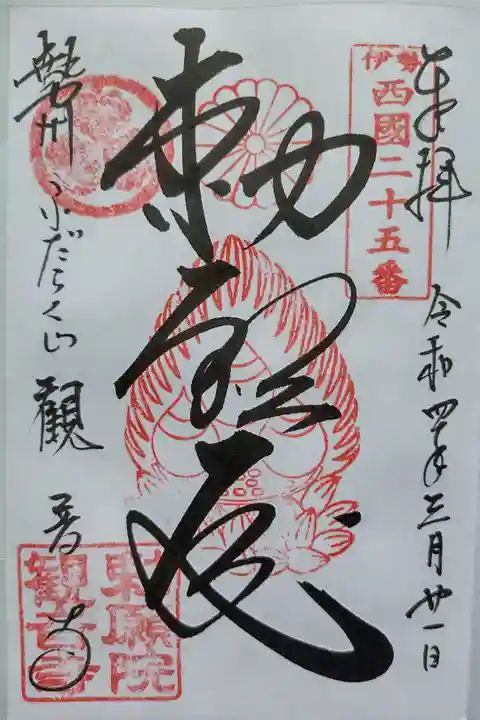 奉拝
令和四年三月廿一日
伊勢
西國二十五番
勅
勢州 ふだらく山 觀音寺
勅願院
観音寺